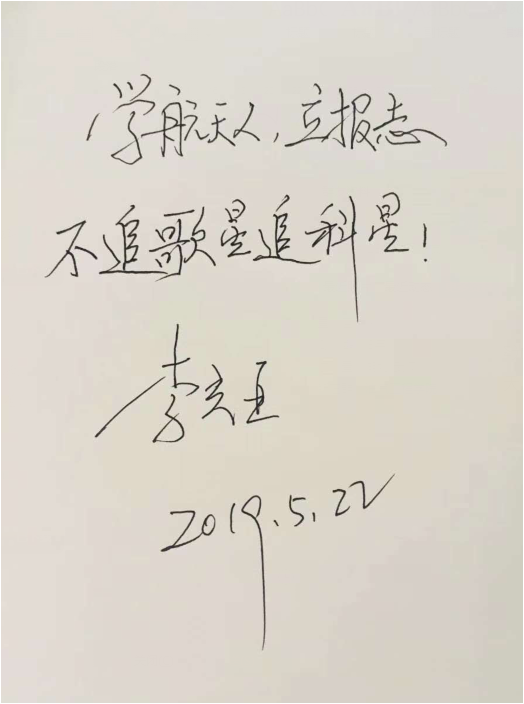 学航天人，立报志
不追歌星追科星！
李
2019.5.22